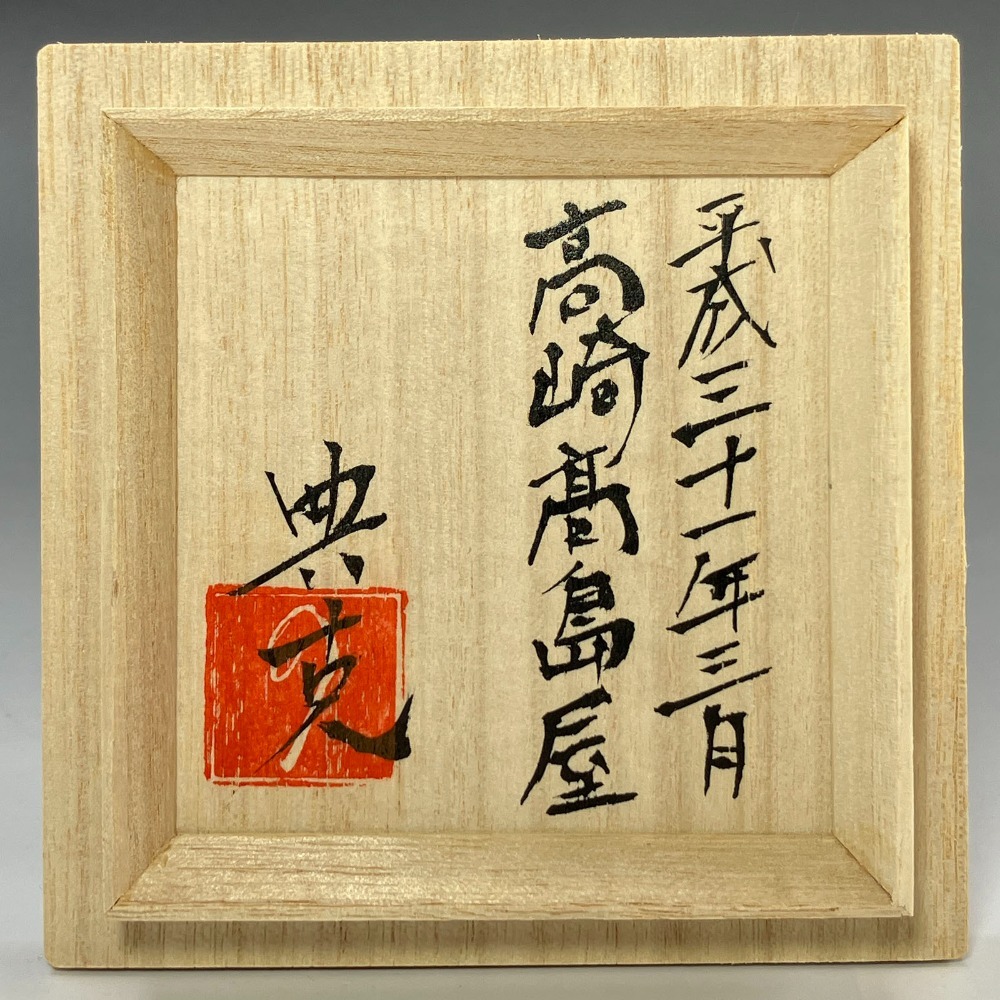 平成三十一年三月
高崎髙島屋
典克